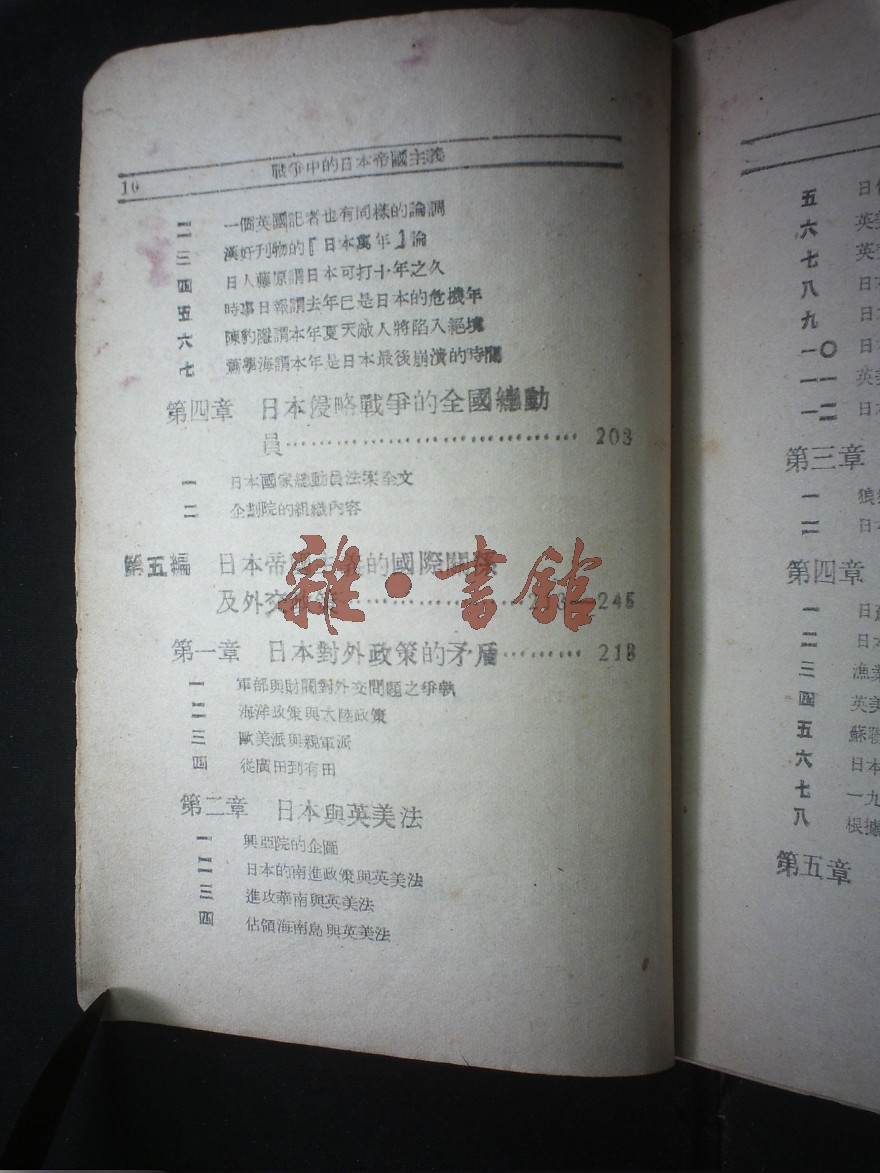 10
戰爭中的日本帝國主義
二 一個英國記者也有同樣的論調
三 漢奸刊物的『日本萬年』論
四 日人藤原謂日本可打十年之久
五 時事日報謂去年已是日本的危機年
六 陳豹隱謂本年夏天敵人將陷入絕境
七 蕭學海謂本年是日本最後崩潰的時間
第四章 日本侵略戰爭的全國總動
員 203
一 日本國家總動員法案全文
二 企劃院的組織內容
第五編 日本帝國主義的國際關係
及外交 245
雜·書館
第一章 日本對外政策的矛盾 213
一 軍部與財閥對外交問題之爭執
二 海洋政策與大陸政策
三 歐美派與親軍派
四 從廣田到有田
第二章 日本與英美法
一 興亞院的企圖
二 日本的南進政策與英美法
三 進攻華南與英美法
四 佔領海南島與英美法
五
六 英美
七 英
八 日本
九 日
一〇 日
一一 英美
一二 日本
第三章
一 狼
二 日
第四章
一 日
二 日本
三 漁業
四 英美
五 蘇
六 日本
七 一九
八 根據
第五章